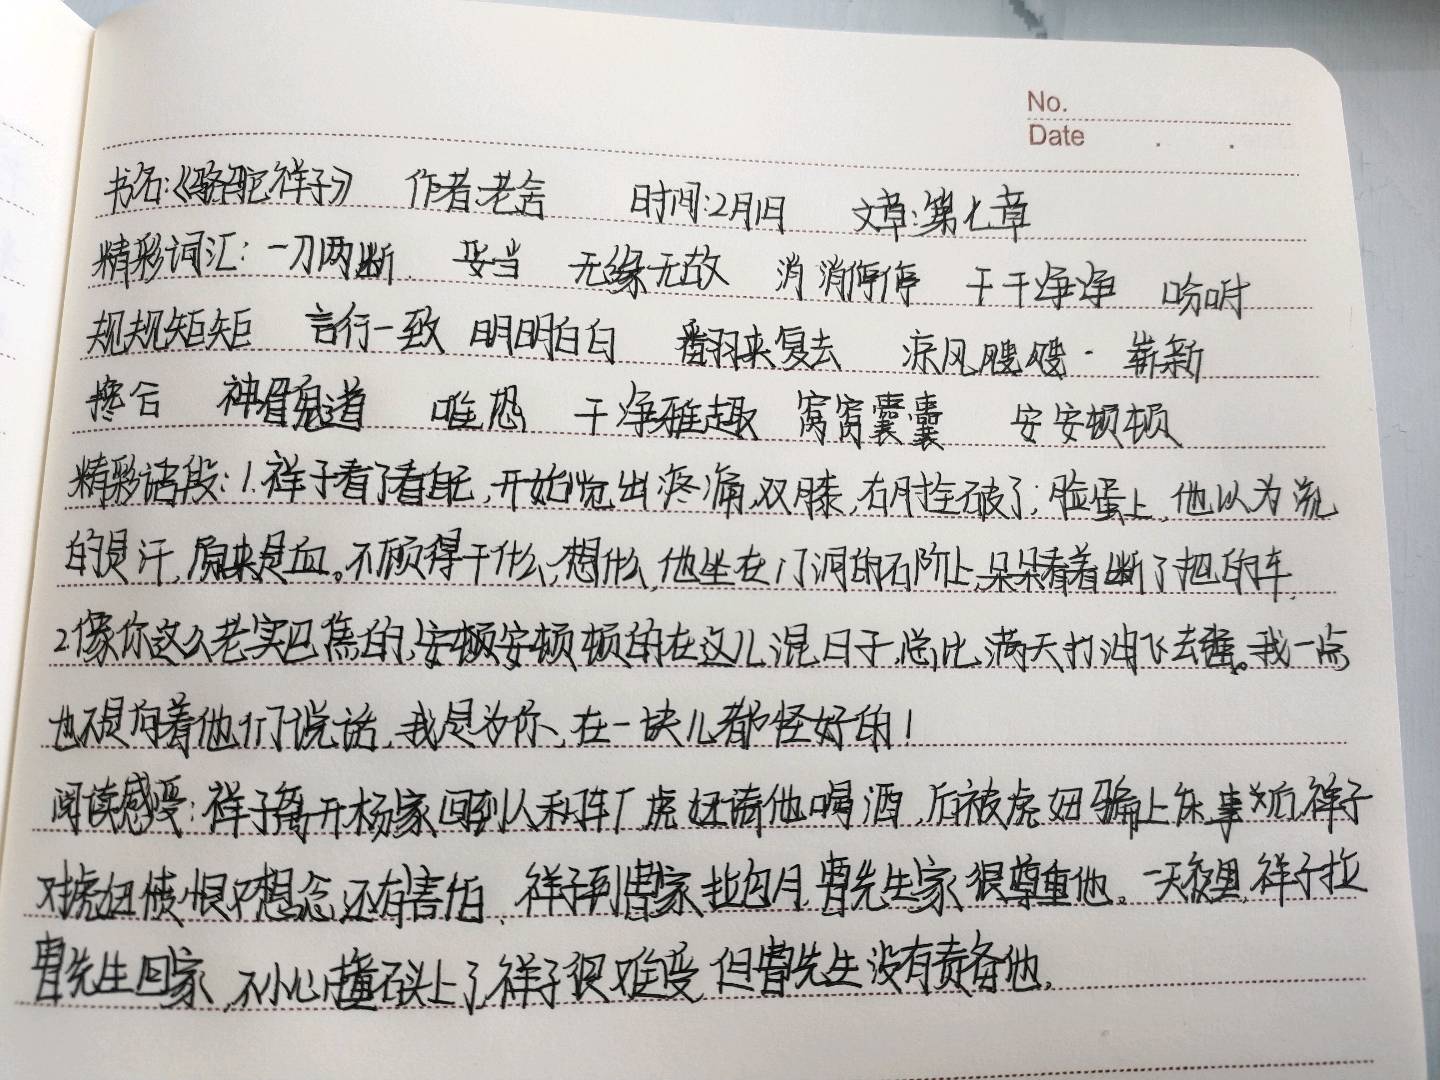 No.
Date
书名:《骆驼祥子》 作者:老舍 时间:2月1日 文章:第七章
精彩词汇: 一刀两断 妥当 无缘无故 消消停停 干干净净 吩咐
规规矩矩 言行一致 明明白白 翻来复去 凉风飕飕 崭新
搀合 神眉鬼道 唯恐 干净雅趣 窝窝囊囊 安安顿顿
精彩语段:1.祥子看了看自己,开始觉出疼痛,双膝,右肘全破了;脸蛋上,他以为流
的是汗,原来是血。不顾得干什么,想什么,他坐在门洞的石阶上,呆呆看着断了把的车.
2.像你这么老实巴焦的,安顿安顿顿的在这儿混日子,总比满天打油飞去强。我一点
也不是向着他们说话,我是为你,在一块儿都怪好的!
阅读感受:祥子离开杨家,回到人和车厂,虎妞请他喝酒,后被虎妞骗上床,事发后,祥子
对虎妞愤恨又想念还有害怕.祥子到曹家拉包月,曹先生家很尊重他。一天夜里,祥子拉
曹先生回家,不小心撞石头上了,祥子很难受,但曹先生没有责备他.